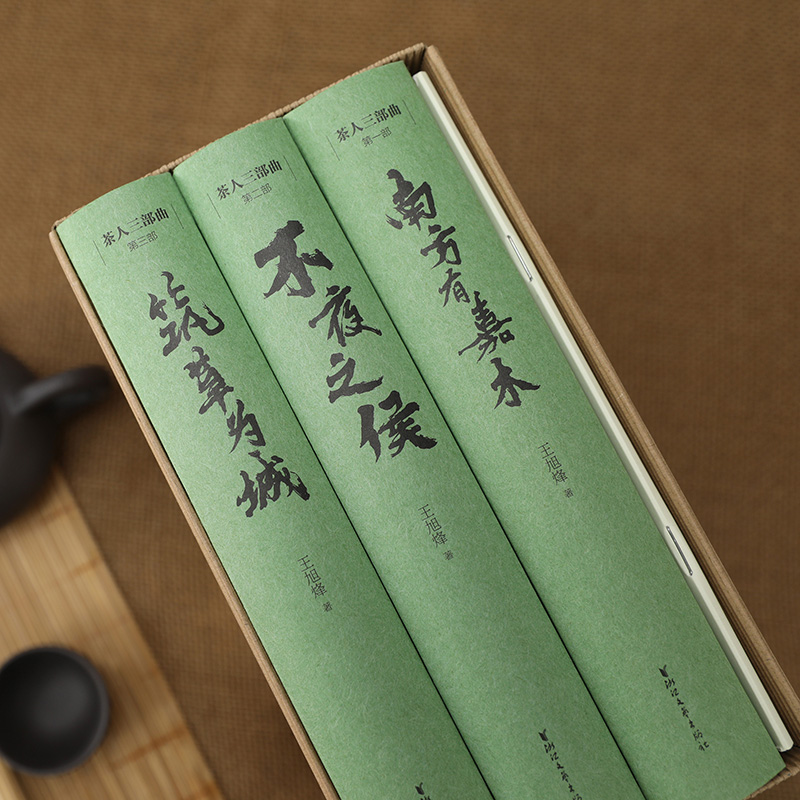 茶人三部曲
第三部
筑草为城
王旭烽 著
茶人三部曲
第二部
不夜之侯
王旭烽 著
浙江文艺出版
茶人三部曲
第一部
南方有嘉木
王旭烽 著
浙江文艺出版社